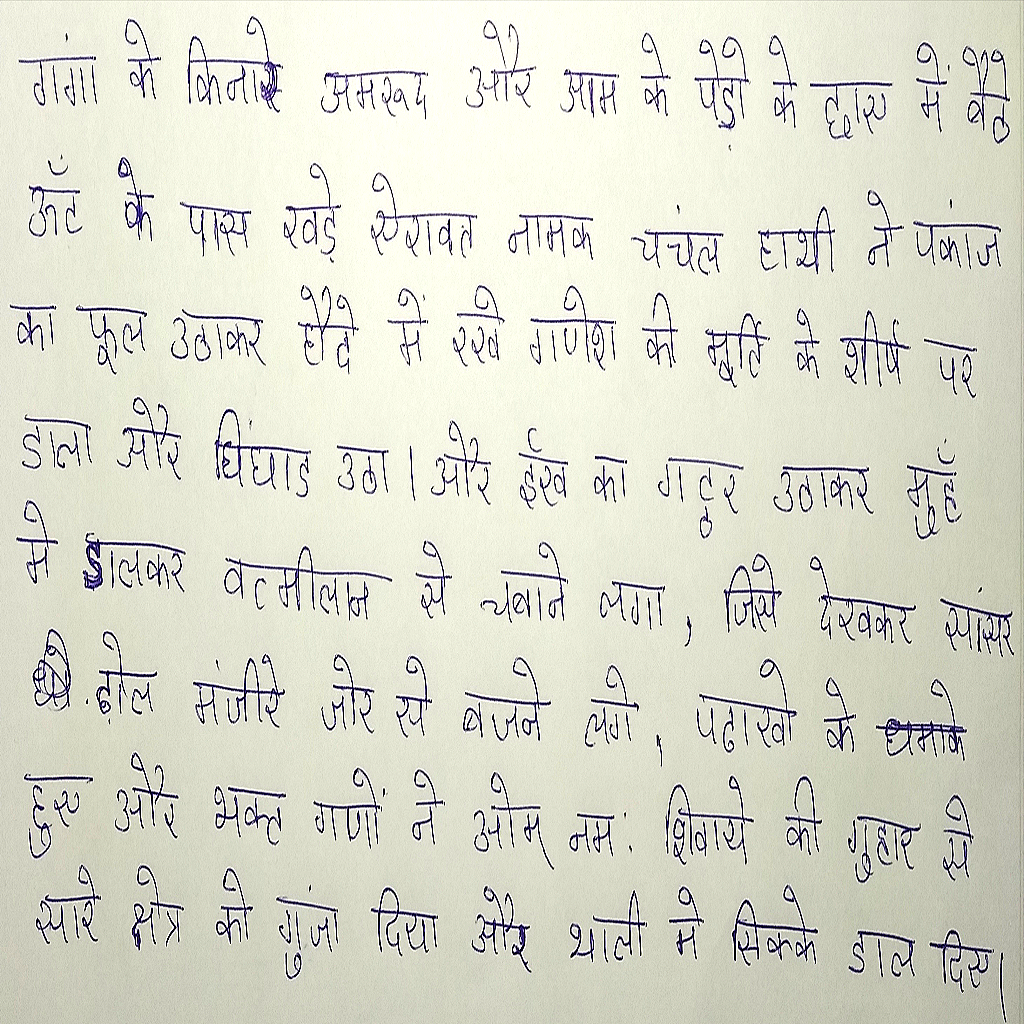 गंगा के किनारे अमरूद और आम के पेड़ो के छाए में बैठे
ऊँट के पास खड़े ऐरावत नामक चंचल हाथी ने पंकाज
का फूल उठाकर हौदे में रखे गणेश की मूर्ति के शीर्ष पर
डाला और चिंघाड उठा । और ईख का गट्ठर उठाकर मुहँ
मे डालकर वटमीलान से चबाने लगा , जिसे देखकर सांसर
ढोल मंजीरे जोर से बजने लगे , पटाखो के धमाके
हुए और भक्त गणों ने ओम् नमः शिवाये की गुहार से
सारे क्षेत्र को गुंजा दिया और थाली मे सिक्के डाल दिए ।